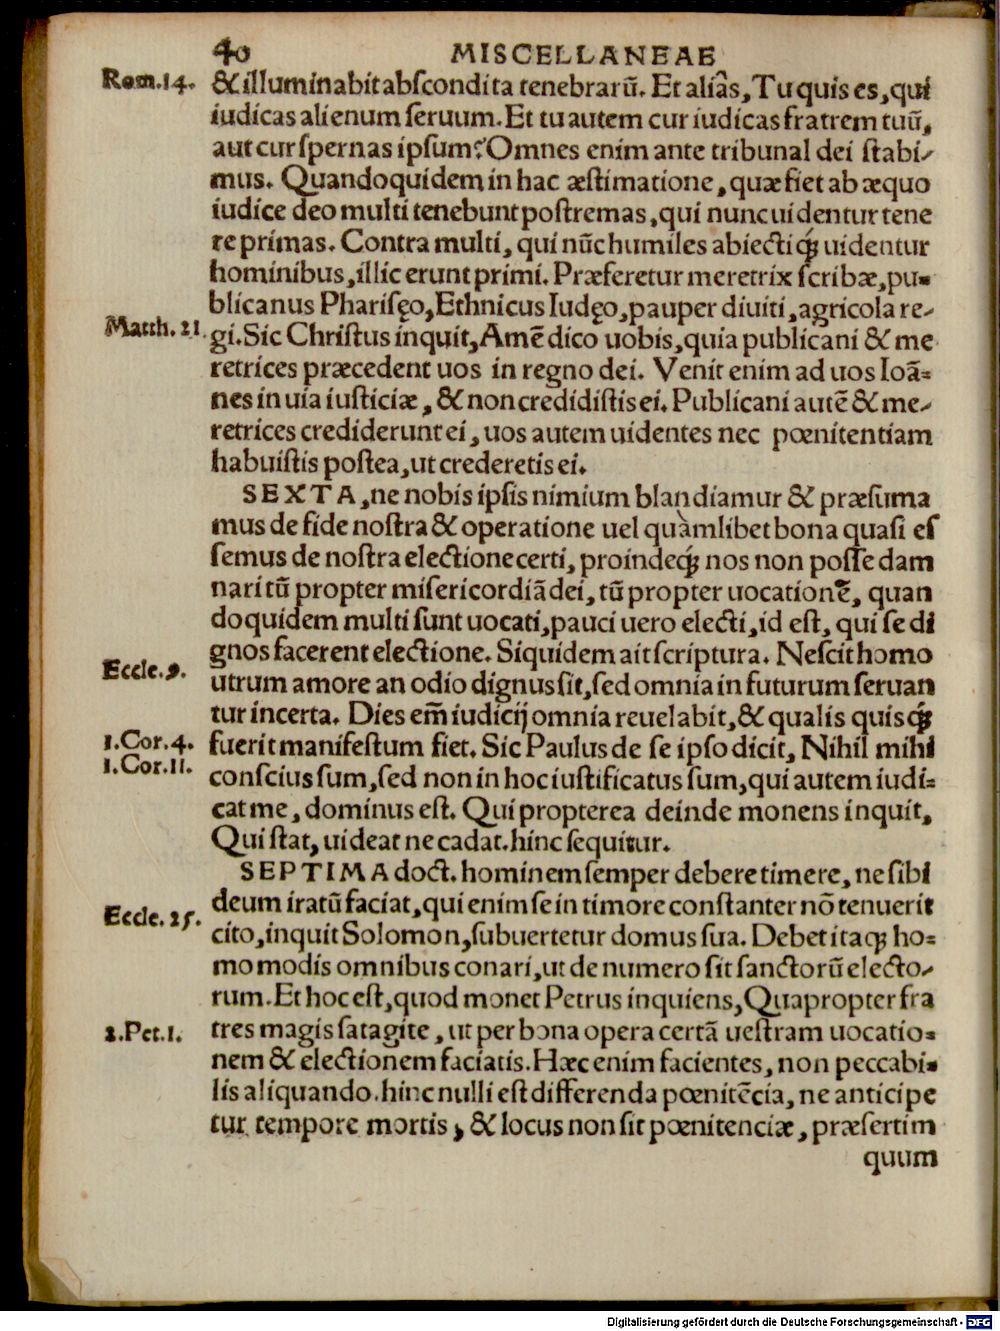 40 MISCELLANEAE
Rom.14. & illuminabit abſcondita tenebrarũ. Et aliâs, Tu quis es, qui
iudicas alienum ſeruum. Et tu autem cur iudicas fratrem tuũ,
aut cur ſpernas ipſum? Omnes enim ante tribunal dei ſtabi-
mus. Quandoquidem in hac æſtimatione, quæ fiet ab æquo
iudice deo multi tenebunt poſtremas, qui nunc uidentur tene
re primas. Contra multi, qui nũc humiles abiectiq́; uidentur
hominibus, illic erunt primi. Præferetur meretrix ſcribæ, pu-
blicanus Phariſęo, Ethnicus Iudęo, pauper diuiti, agricola re-
Matth.21. gi. Sic Chriſtus inquit, Amẽ dico uobis, quia publicani & me
retrices præcedent uos in regno dei. Venit enim ad uos Ioã=
nes in uia iuſticiæ, & non credidiſtis ei. Publicani autẽ & me-
retrices crediderunt ei, uos autem uidentes nec pœnitentiam
habuiſtis poſtea, ut crederetis ei.
SEXTA, ne nobis ipſis nimium blandiamur & præſuma
mus de fide noſtra & operatione uel quàmlibet bona quaſi eſ
ſemus de noſtra electione certi, proindeq́; nos non poſſe dam
nari tũ propter miſericordiã dei, tũ propter uocationẽ, quan
doquidem multi ſunt uocati, pauci uero electi, id eſt, qui ſe di
gnos facerent electione. Siquidem ait ſcriptura. Neſcit homo
Eccle.9. utrum amore an odio dignus ſit, ſed omnia in futurum ſeruan
tur incerta. Dies em̃ iudicij omnia reuelabit, & qualis quisq́;
1.Cor.4. fuerit manifeſtum fiet. Sic Paulus de ſe ipſo dicit, Nihil mihi
1.Cor.11. conſcius ſum, ſed non in hoc iuſtificatus ſum, qui autem iudi=
cat me, dominus eſt. Qui propterea deinde monens inquit,
Qui ſtat, uideat ne cadat. hinc ſequitur.
SEPTIMA doct. hominem ſemper debere timere, ne ſibi
deum iratũ faciat, qui enim ſe in timore conſtanter nõ tenuerit
Eccle.25. cito, inquit Solomon, ſubuertetur domus ſua. Debet itaq; ho=
mo modis omnibus conari, ut de numero ſit ſanctorũ electo-
rum. Et hoc eſt, quod monet Petrus inquiens, Quapropter fra
2.Pet.1. tres magis ſatagite, ut per bona opera certã ueſtram uocatio=
nem & electionem faciatis. Hæc enim facientes, non peccabi-
lis aliquando. hinc nulli eſt differenda pœnitẽcia, ne anticipe
tur tempore mortis, & locus non ſit pœnitenciæ, præſertim
quum
Digitalisierung gefördert durch die Deutsche Forschungsgemeinschaft - DFG